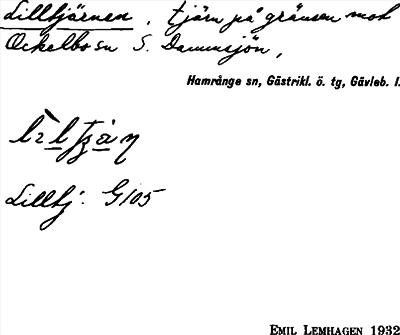 Lilltjärnen, tjärn på gränsen mot
Ockelbo sn S. Dammsjön,
Hamrånge sn, Gästrikl. ö. tg, Gävleb. l.
Lilltj. G105
EMIL LEMHAGEN 1932